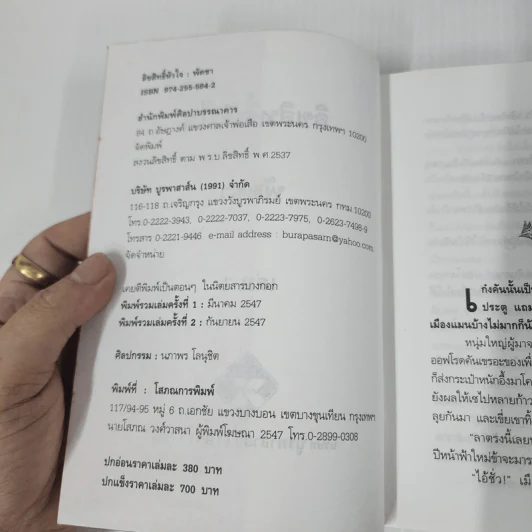 ลิขสิทธิ์หัวใจ : พัดชา
ISBN 974-255-684-2
สำนักพิมพ์ศิลปาบรรณาคาร
84 ถ.อัษฎางค์ แขวงศาลเจ้าพ่อเสือ เขตพระนคร กรุงเทพฯ 10200
จัดพิมพ์
สงวนลิขสิทธิ์ ตาม พ.ร.บ.ลิขสิทธิ์ พ.ศ.2537
บริษัท บูรพาสาส์น (1991) จำกัด
116-118 ถ.เจริญกรุง แขวงวังบูรพาภิรมย์ เขตพระนคร กทม.10200
โทร.0-2222-3943, 0-2222-7037, 0-2223-7975, 0-2623-7498-9
โทรสาร 0-2221-9446 e-mail address : burapasarn@yahoo.com
จัดจำหน่าย
เคยตีพิมพ์เป็นตอนๆ ในนิตยสารบางกอก
พิมพ์รวมเล่มครั้งที่ 1 : มีนาคม 2547
พิมพ์รวมเล่มครั้งที่ 2 : กันยายน 2547
ศิลปกรรม : นภาพร โลนุชิต
พิมพ์ที่ : โสภณการพิมพ์
117/94-95 หมู่ 6 ถ.เอกชัย แขวงบางบอน เขตบางขุนเทียน กรุงเทพฯ
นายโสภณ วงศ์วาสนา ผู้พิมพ์โฆษณา 2547 โทร.0-2899-0308
ปกอ่อนราคาเล่มละ 380 บาท
ปกแข็งราคาเล่มละ 700 บาท
เก่งตันนั้นเป็
ประตู แถม
เมืองแมนบ้างไม่มากก็น้
หนุ่มใหญ่ผู้มาจ
ออฟโรดคันเขรอะของเพื่
ก็ส่งกระเป๋าหนักอึ้งมาโค
ยังผลให้เซไปหลายก้าว
ลุยกันมา และเขี่ยเขาทิ้
"ลาตรงนี้เลยน
ปีหน้าฟ้าใหม่ข้าจะมาร
"ไอ้ชั่ว!" เมื